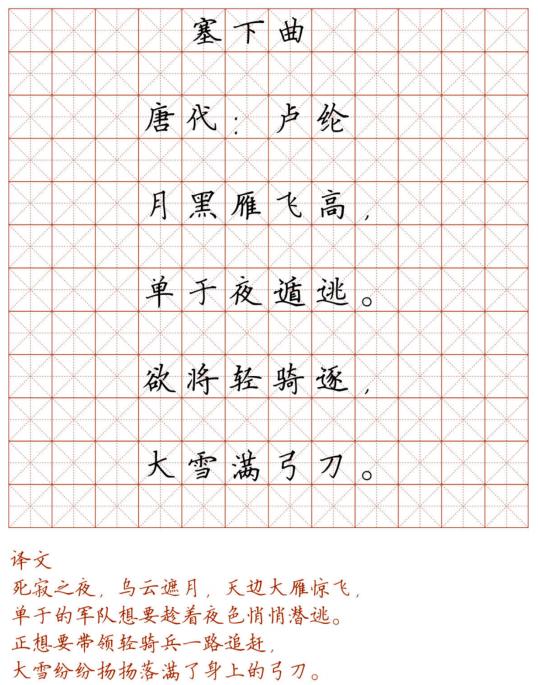 塞下曲
唐代：卢纶
月黑雁飞高，
单于夜遁逃。
欲将轻骑逐，
大雪满弓刀。
译文
死寂之夜，乌云遮月，天边大雁惊飞，
单于的军队想要趁着夜色悄悄潜逃。
正想要带领轻骑兵一路追赶，
大雪纷纷扬扬落满了身上的弓刀。